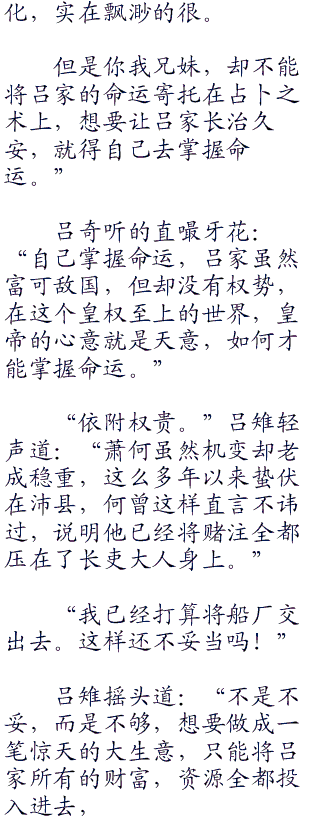 化，实在飘渺的很。
但是你我兄妹，却不能
将吕家的命运寄托在占卜之
术上，想要让吕家长治久
安，就得自己去掌握命
运。”
吕奇听的直嘬牙花：
“自己掌握命运，吕家虽然
富可敌国，但却没有权势，
在这个皇权至上的世界，皇
帝的心意就是天意，如何才
能掌握命运。”
“依附权贵。”吕雉轻
声道：“萧何虽然机变却老
成稳重，这么多年以来蛰伏
在沛县，何曾这样直言不讳
过，说明他已经将赌注全都
压在了长吏大人身上。”
“我已经打算将船厂交
出去。这样还不妥当吗！”
吕雉摇头道：“不是不
妥，而是不够，想要做成一
笔惊天的大生意，只能将吕
家所有的财富，资源全都投
入进去，